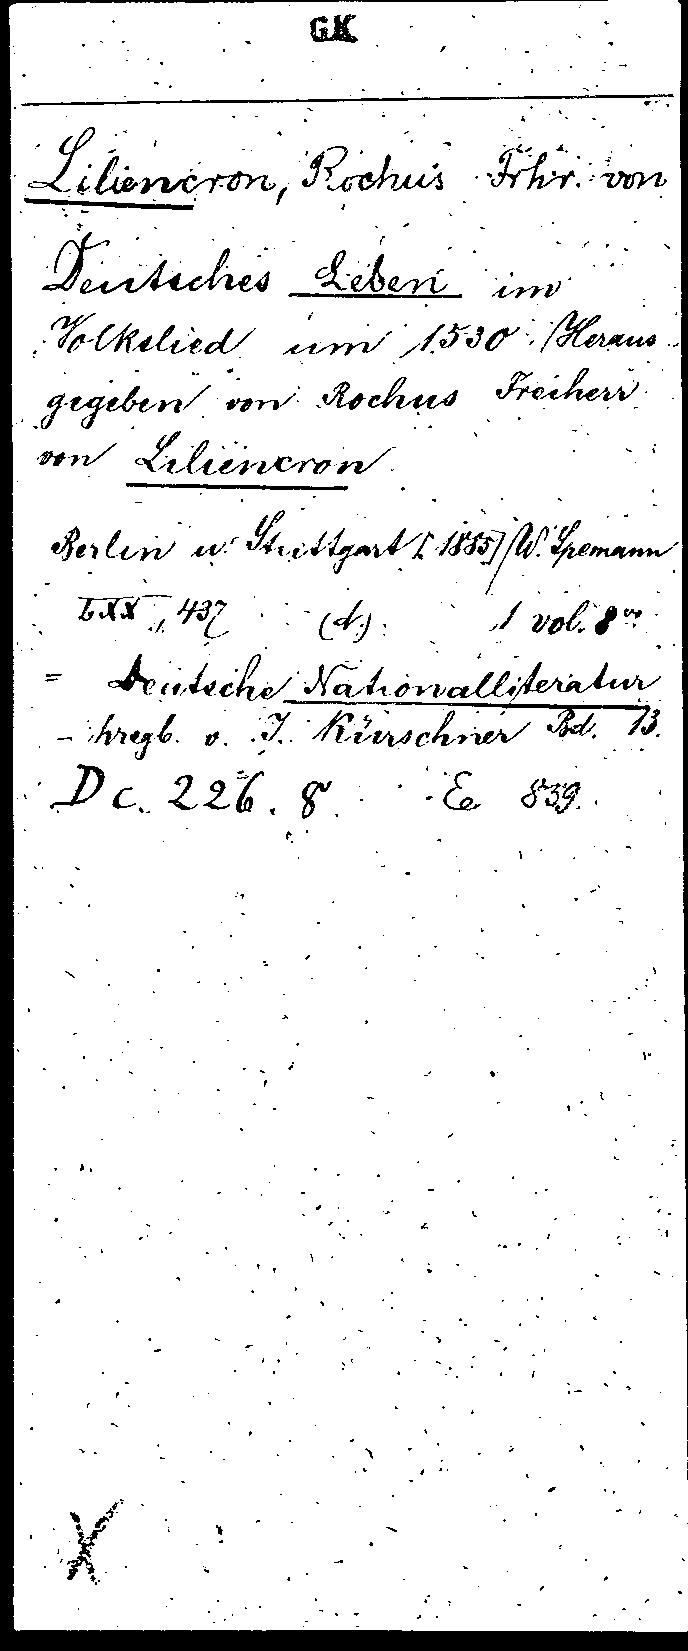 GK
Liliencron, Rochus Frhr. von
Deutsches Leben im
Volkslied um 1530. / Heraus
gegeben von Rochus Freiherr
von Liliencron
Berlin u. Stuttgart [1885] / W. Spemann
LXX, 437 (d.) 1 vol. 8vo
= Deutsche Nationalliteratur
- hregb. v. J. Kürschner Bd. 13.
Dc. 226. 8 E 839.
X